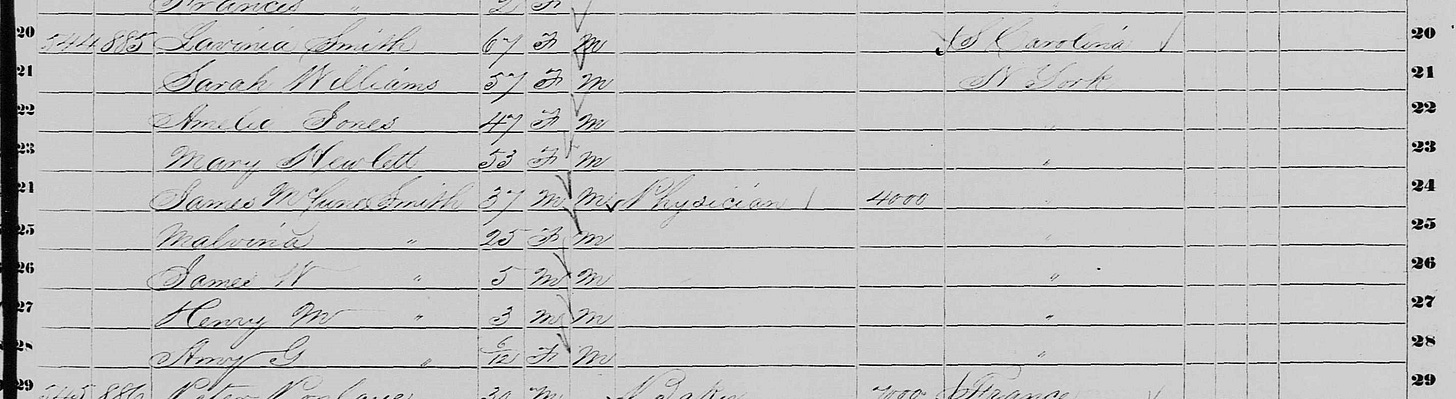 Francis " 2 F
20 544 885 Lavinia Smith 67 F M S Carolina 20
21 Sarah Williams 57 F M N York 21
22 Amelia Jones 47 F M " 22
23 Mary Hewlett 53 F M " 23
24 James McCune Smith 37 M M Physician 4000 " 24
25 Malvina " 25 F M " 25
26 James W " 5 M M " 26
27 Henry M " 3 M M " 27
28 Amy G " 6/12 F M " 28
29 545 886 Peter 30 M 7000 France 29